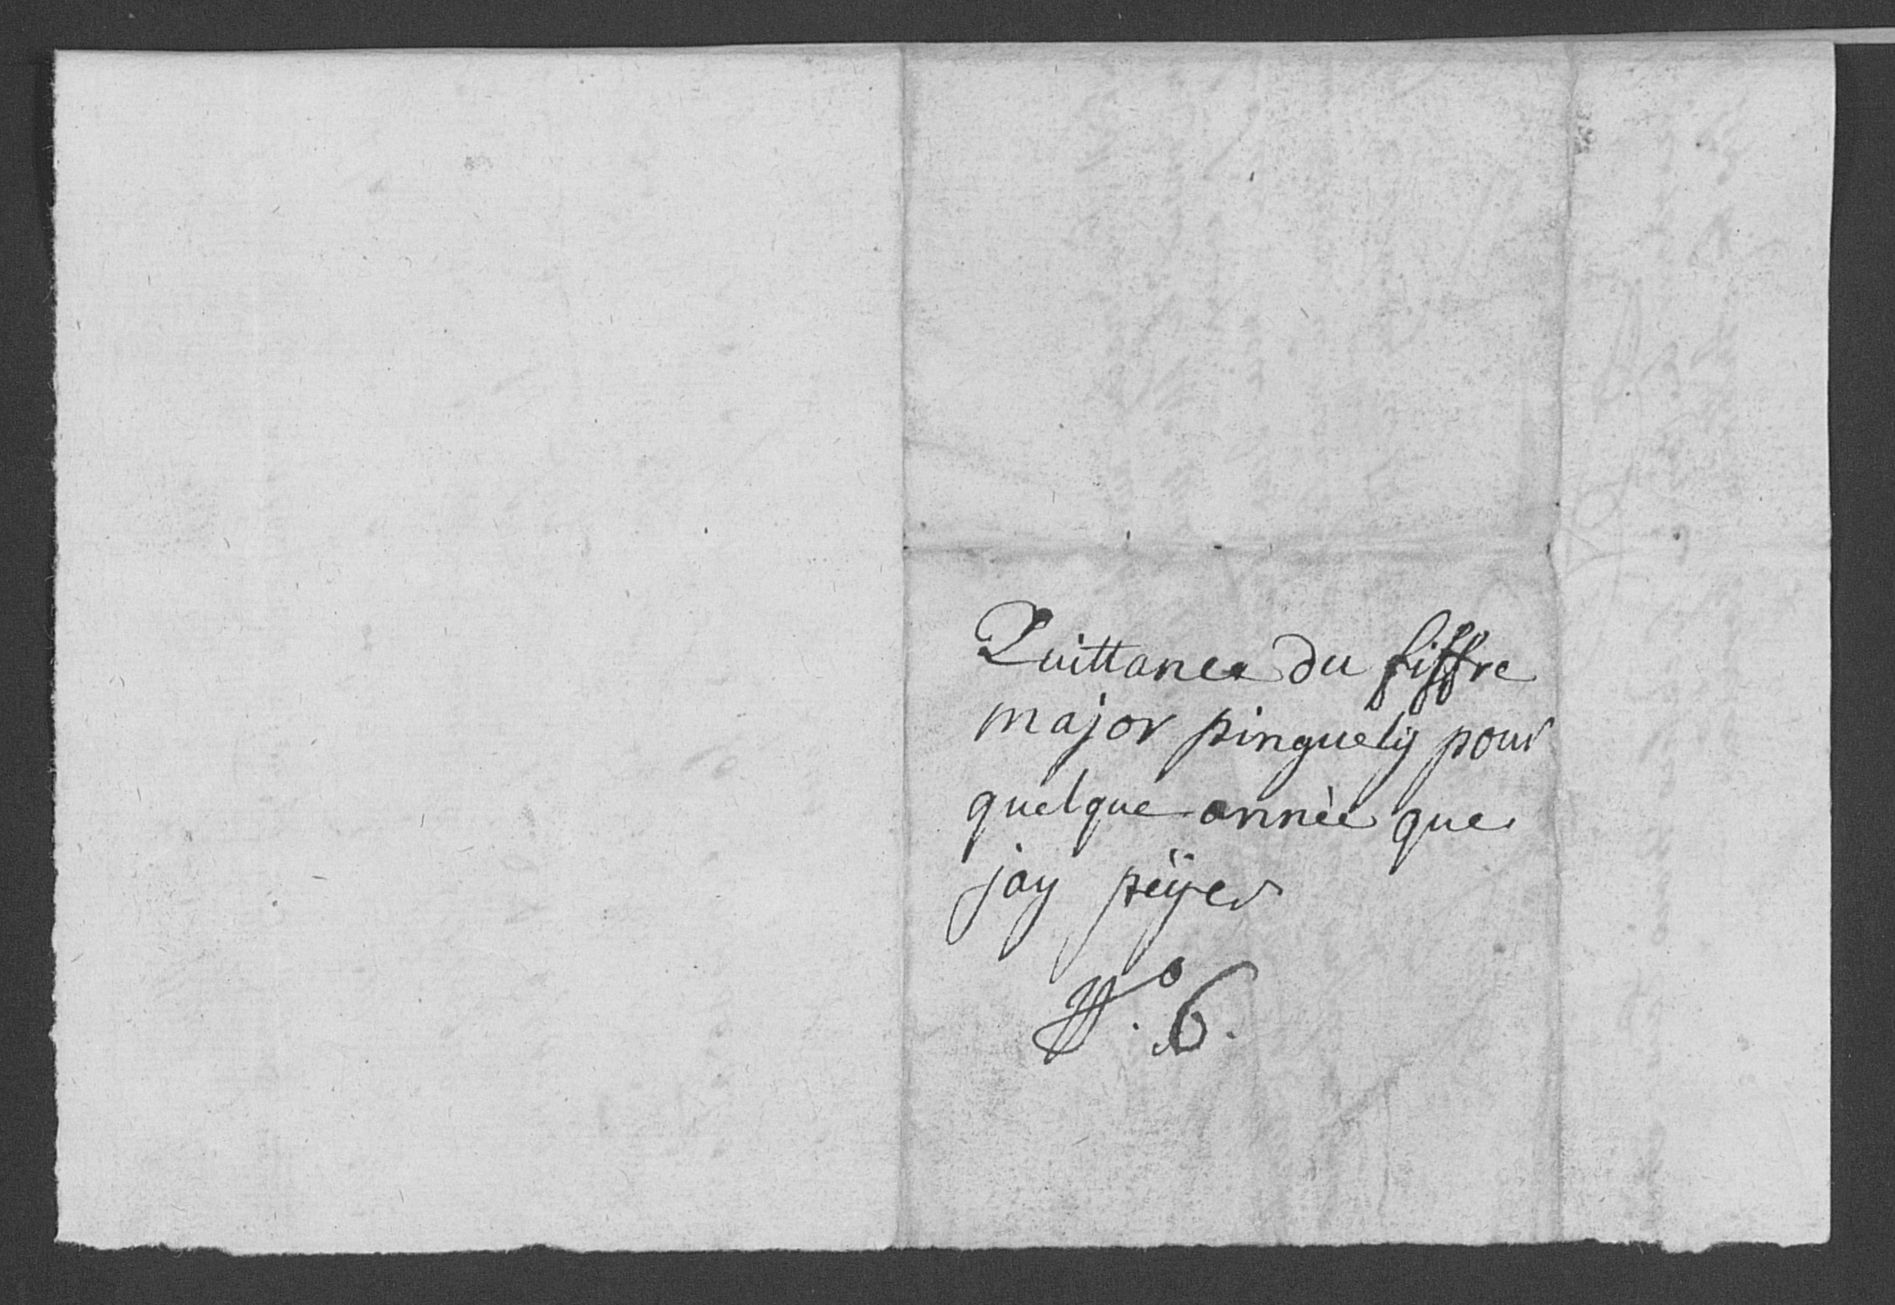 Quittance du fiffre
major pinguely pour
quelque annèe que
jay peÿer
N.º 6.